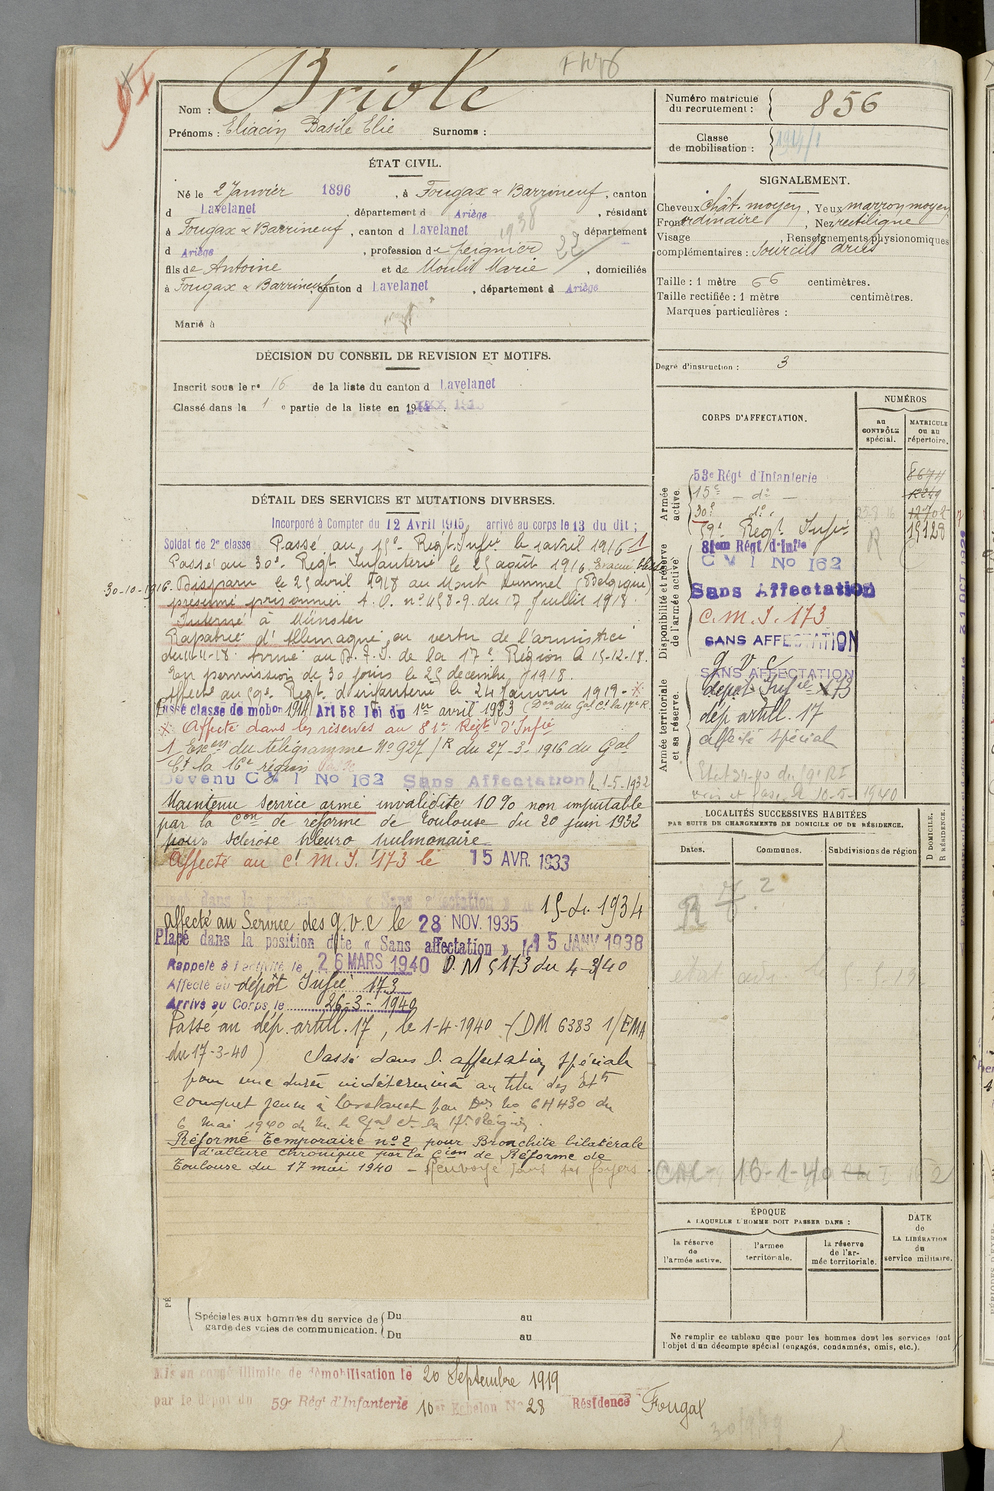 Nom : Briole
Prénoms : Eliacin Basile Elie Surnoms :
ÉTAT CIVIL.
Né le 2 Janvier 1896, à Fougax & Barrineuf, canton
d Lavelanet, département d Ariège, résidant
à Fougax & Barrineuf, canton d Lavelanet 1938 département
d Ariège, profession de peignier 22
fils de Antoine et de Moulis Marie, domiciliés
à Fougax & Barrineuf, canton d Lavelanet, département d Ariège
Marié à
DÉCISION DU CONSEIL DE REVISION ET MOTIFS.
Inscrit sous le n° 16 de la liste du canton d Lavelanet
Classé dans la 1 e partie de la liste en 191
DÉTAIL DES SERVICES ET MUTATIONS DIVERSES.
Incorporé à Compter du 12 Avril 1915, arrivé au corps le 13 du dit ;
Soldat de 2e classe Passé au 15e Regt. Infie le 1 avril 1916 1
Passé au 30e Regt Infanterie le 25 août 1916, Evacué
30-10-1916. Disparu le 25 avril 1918 au Mont Kummel (Belgique)
présumé prisonnier A. O. n° 453-9. du 17 Juillet 1918.
Interné à Münster
Rapatrié d'Allemagne en vertu de l'armistice
du 11-11-18. Arrivé au D. F. I. de la 17e Région le 15-12-18.
En permission de 30 jours le 25 décembre 1918.
Affecté au 59e Regt. d'infanterie le 24 Janvier 1919 - *
Passé classe de mobon 1914 Art 58 Loi du 1er avril 1923 (Don du Gal Ct la 17e R.
* Affecté dans les réserves au 81e Regt d'Infie
1 Exon du télégramme N° 927/R du 27-3-1916 du Gal
Ct la 16e région
Devenu C M I No 162 Sans Affectation le 1-5-1932
Maintenu service armé invalidité 10% non imputable
par la Con de réforme de Toulouse du 20 juin 1932
pour sclérose pleuro pulmonaire
Affecté au C. M. I. 173 le 15 AVR. 1933
15-4-1934
Affecté au Service des G.V.C le 28 NOV. 1935
Placé dans la position dite « Sans affectation » le 15 JANV 1938
Rappelé à l'activité le 26 MARS 1940 D.M 5173 du 4-3/40
Affecté au dépôt Infie 173
Arrivé au Corps le 26-3-1940
Passé au dép. artill. 17, le 1-4-1940 - (DM 6383 1/EMA
du 17-3-40) Classé dans l'affectation spéciale
pour une durée indéterminée au titre des Ets
Couquet jeune à Lavelanet par Don No 6H430 du
6 Mai 1940 de M. le Gal Ct la 17e Région.
Réformé Temporaire n°2 pour Bronchite bilatérale
d'allure chronique par la Cion de Réforme de
Toulouse du 17 mai 1940 - Renvoyé dans ses foyers
Spéciales aux hommes du service de garde des voies de communication. { Du au
Du au
Mis en congé illimité de démobilisation le 20 Septembre 1919
par le dépôt du 59e Régt d'Infanterie 10e Echelon N° 28 Résidence Fougax
Numéro matricule du recrutement : 856
Classe de mobilisation : 1914/1
SIGNALEMENT.
Cheveux Chât. moyen, Yeux marron moyen
Front ordinaire, Nez rectiligne
Visage, Renseignements physionomiques
complémentaires : Sourcils
Taille : 1 mètre 66 centimètres.
Taille rectifiée : 1 mètre centimètres.
Marques particulières :
Degré d'instruction : 3
CORPS D'AFFECTATION.
NUMÉROS
au CONTRÔLE spécial.
MATRICULE ou au répertoire.
Armée active.
53e Régt d'Infanterie 8674
15e - do - 12849
30e do 12702
59e Regt Infie 15128
R
Disponibilité et réserve de l'armée active
81eme Régt d'Infie
C M I No 162
Sans Affectation
C. M. I. 173
SANS AFFECTATION
G V C
SANS AFFECTATION
Armée territoriale et sa réserve.
dépôt Infie 173
dép artill. 17
affecté spécial
LOCALITÉS SUCCESSIVES HABITÉES
PAR SUITE DE CHANGEMENTS DE DOMICILE OU DE RÉSIDENCE.
Dates. Communes. Subdivisions de région
D DOMICILE.
R RÉSIDENCE.
16-1-40
ÉPOQUE
A LAQUELLE L'HOMME DOIT PASSER DANS :
la réserve de l'armée active. l'armée territoriale. la réserve de l'armée territoriale.
DATE de LA LIBÉRATION du service militaire.
Ne remplir ce tableau que pour les hommes dont les services font
l'objet d'un décompte spécial (engagés, condamnés, omis, etc.).